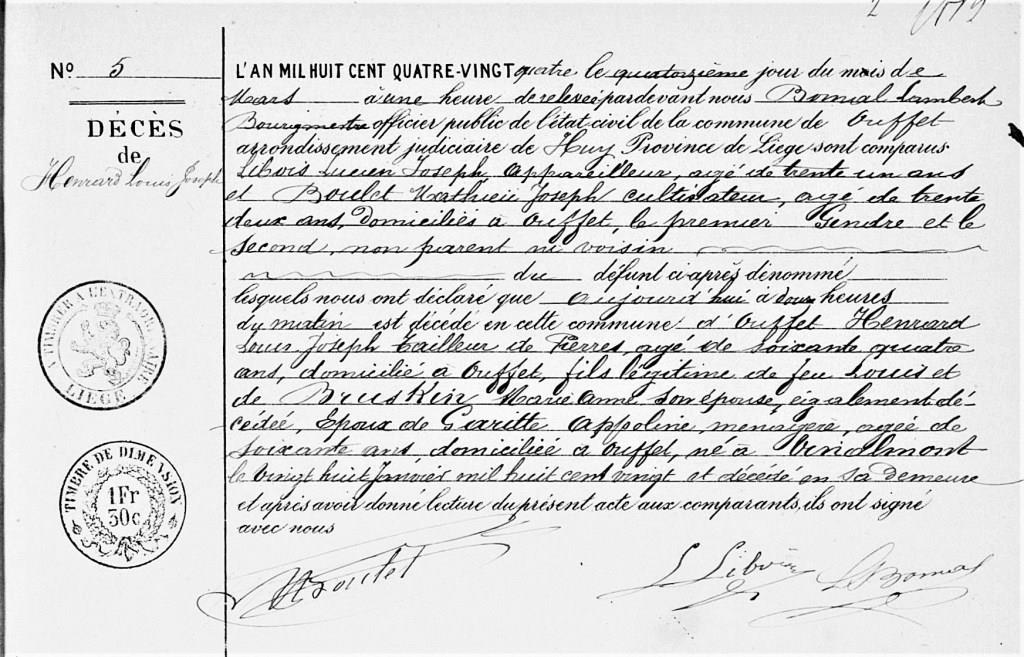 Nº 5
DÉCÈS
de
Henrard Louis Joseph
TIMBRE DE DIMENSION
1 Fr
30c
LIEGE
L'AN MIL HUIT CENT QUATRE-VINGT quatre le quatorzième jour du mois de
Mars à une heure de relevée pardevant nous Bomal Lambert
Bourgmestre officier public de l'état civil de la commune de Ouffet
arrondissement judiciaire de Huy Province de Liege sont comparus
Libois Lucien Joseph appareilleur, agé de trente un ans
et Boulet Mathieu Joseph cultivateur, agé de trente
deux ans, domiciliés à Ouffet, le premier Gendre et le
second, non parent ni voisin
du défunt ci-après dénommé
lesquels nous ont déclaré que aujourd'hui à heures
du matin est décédé en cette commune d'Ouffet Henrard
Louis Joseph tailleur de Pierres, agé de soixante quatre
ans, domicilié à Ouffet, fils légitime de feu Louis et
de Bruskin Marie Anne son épouse, également dé-
cédée, Epoux de Garitte Appoline, menagère, agée de
soixante ans, domiciliée à Ouffet, né à Vinalmont
le vingt huit Janvier mil huit cent vingt et décédé en sa demeure
et après avoir donné lecture du présent acte aux comparants, ils ont signé
avec nous
M Boulet L Libois L Bomal